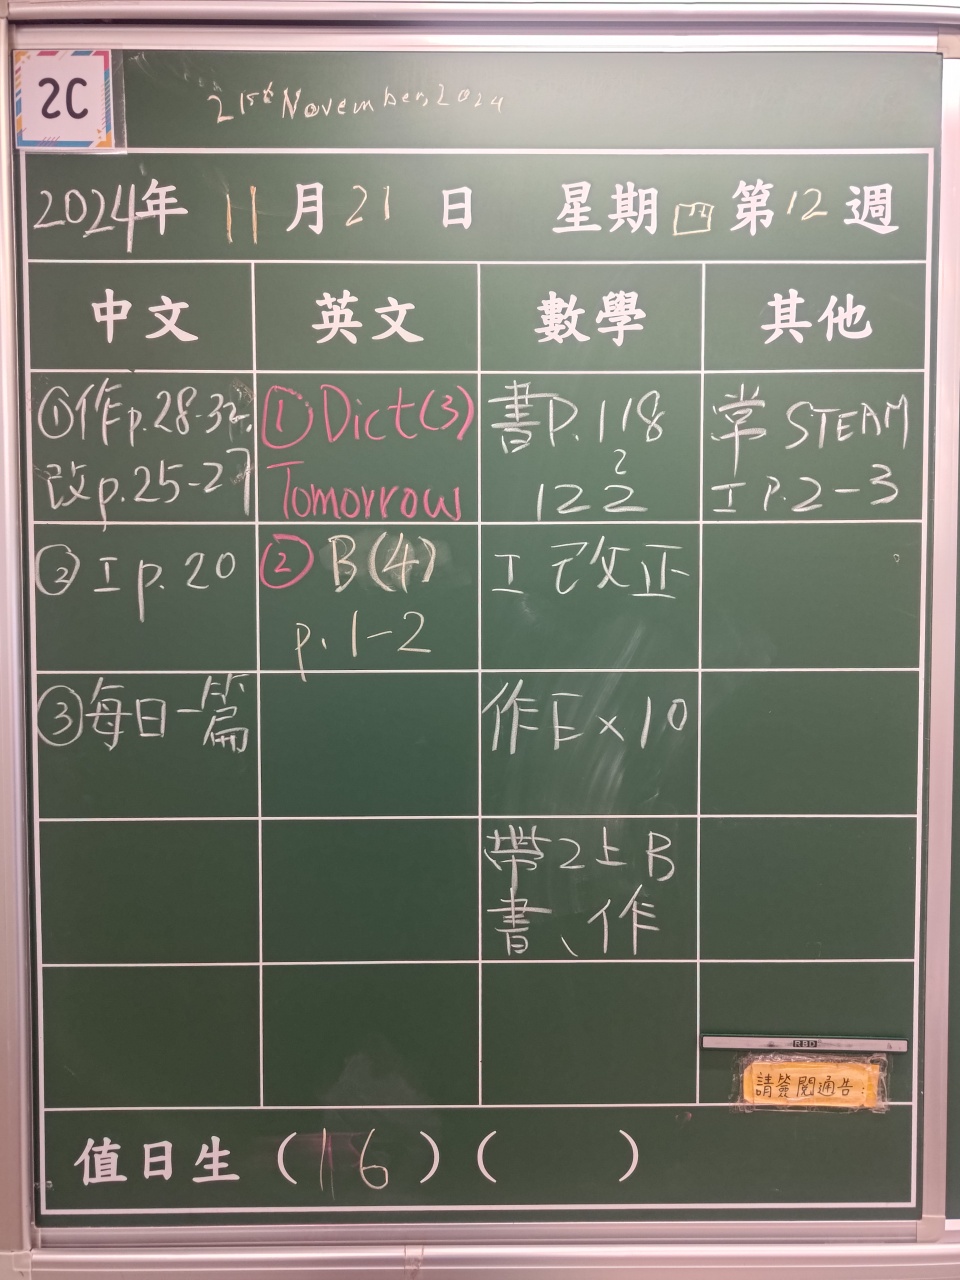 2C
21st November, 2024
2024年 11 月 21 日 星期四 第 12 週
中文 英文 數學 其他
①作p.28-32
改p.25-27
②工p.20
③每日一篇
①Dict(3)
Tomorrow
② B(4)
p. 1-2
書P.118
2
122
工 改正
作Ex10
帶2上B
書、作
常 STEAM
工P.2-3
RBD
請簽閱通告:
值日生 (16) ( )